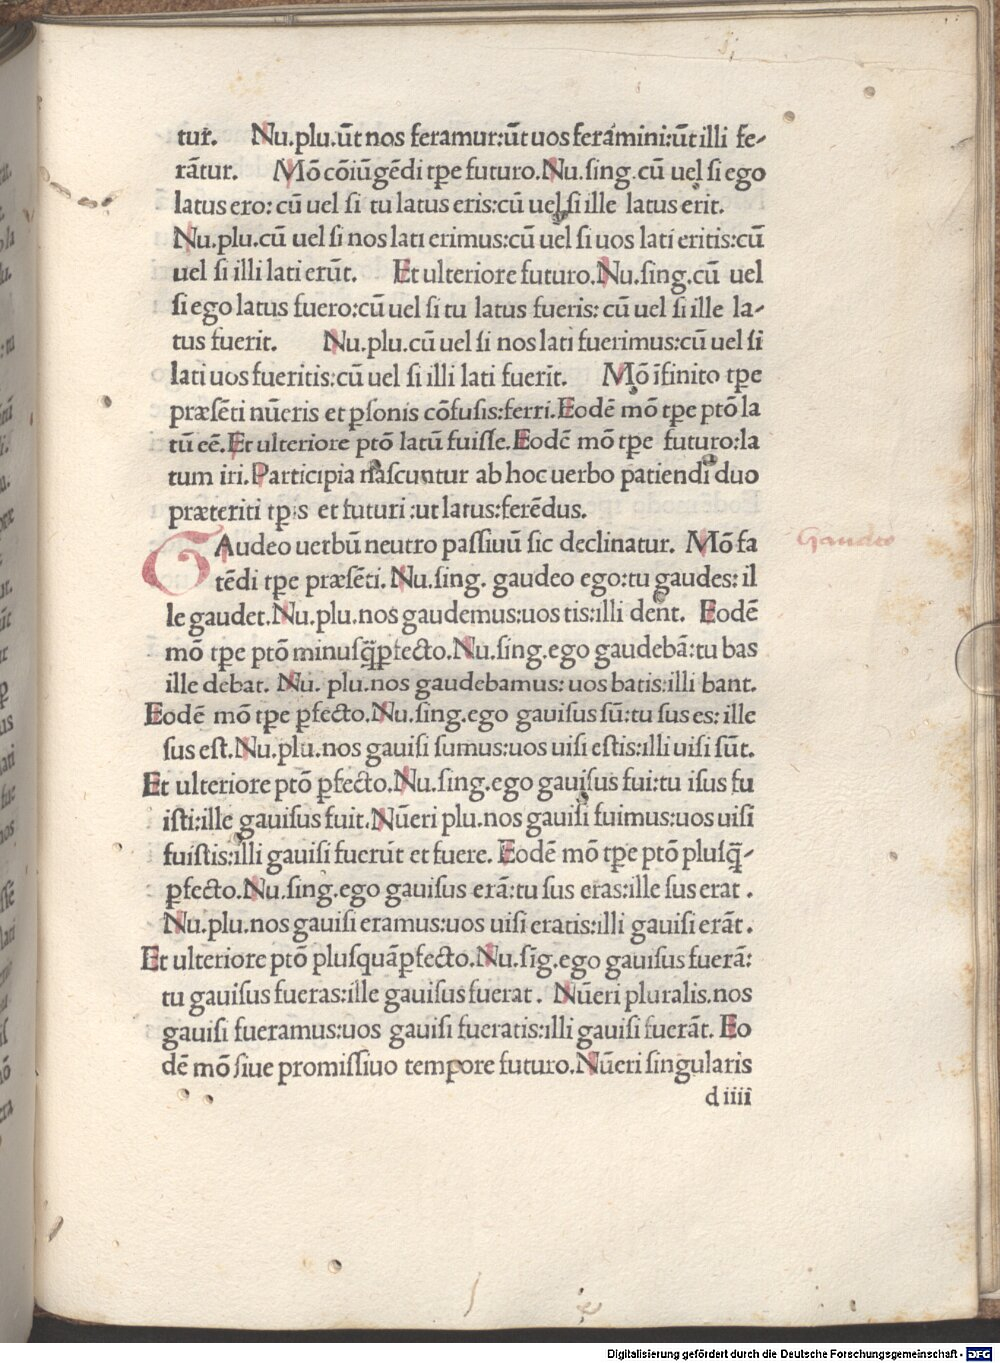 tur. Nu.plu.ūt nos feramur:ūt uos feramini:ūt illi fe-
rātur. Mō cōiūgēdi tpe futuro.Nu.sing.cū uel si ego
latus ero: cū uel si tu latus eris:cū uel si ille latus erit.
Nu.plu.cū uel si nos lati erimus:cū uel si uos lati eritis:cū
uel si illi lati erūt. Et ulteriore futuro.Nu.sing.cū uel
si ego latus fuero:cū uel si tu latus fueris: cū uel si ille la-
tus fuerit. Nu.plu.cū uel si nos lati fuerimus:cū uel si
lati uos fueritis:cū uel si illi lati fuerīt. Mō īfinito tpe
præsēti nūeris et psonis cōfusis:ferri.Eodē mō tpe ptō la
tū eē.Et ulteriore ptō latū fuisse.Eodē mō tpe futuro:la
tum iri.Participia nascuntur ab hoc uerbo patiendi duo
præteriti tp:s et futuri :ut latus:ferēdus.
GAudeo uerbū neutro passiuū sic declinatur. Mō fa
tēdi tpe præsēti. Nu.sing. gaudeo ego:tu gaudes: il
le gaudet.Nu.plu.nos gaudemus:uos tis:illi dent. Eodē
mō tpe ptō minusq̄ꝑfecto.Nu.sing.ego gaudebā:tu bas
ille debat. Nu. plu.nos gaudebamus: uos batis:illi bant.
Eodē mō tpe ꝑfecto.Nu.sing.ego gauisus sū:tu sus es: ille
sus est.Nu.plu.nos gauisi sumus:uos uisi estis:illi uisi sūt.
Et ulteriore ptō ꝑfecto.Nu.sing.ego gauisus fui:tu isus fu
isti:ille gauisus fuit.Nūeri plu.nos gauisi fuimus:uos uisi
fuistis:illi gauisi fuerūt et fuere. Eodē mō tpe ptō plusq̄-
ꝑfecto.Nu.sing.ego gauisus erā:tu sus eras:ille sus erat .
Nu.plu.nos gauisi eramus:uos uisi eratis:illi gauisi erāt.
Et ulteriore ptō plusquāꝑfecto.Nu.sīg.ego gauisus fuerā:
tu gauisus fueras:ille gauisus fuerat . Nūeri pluralis.nos
gauisi fueramus:uos gauisi fueratis:illi gauisi fuerāt. Eo
dē mō siue promissiuo tempore futuro.Nūeri singularis
d iiii
Gaudeo
Digitalisierung gefördert durch die Deutsche Forschungsgemeinschaft - DFG